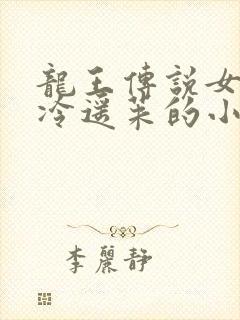 龍王傳説女
冷遥茱的小
李麗靜